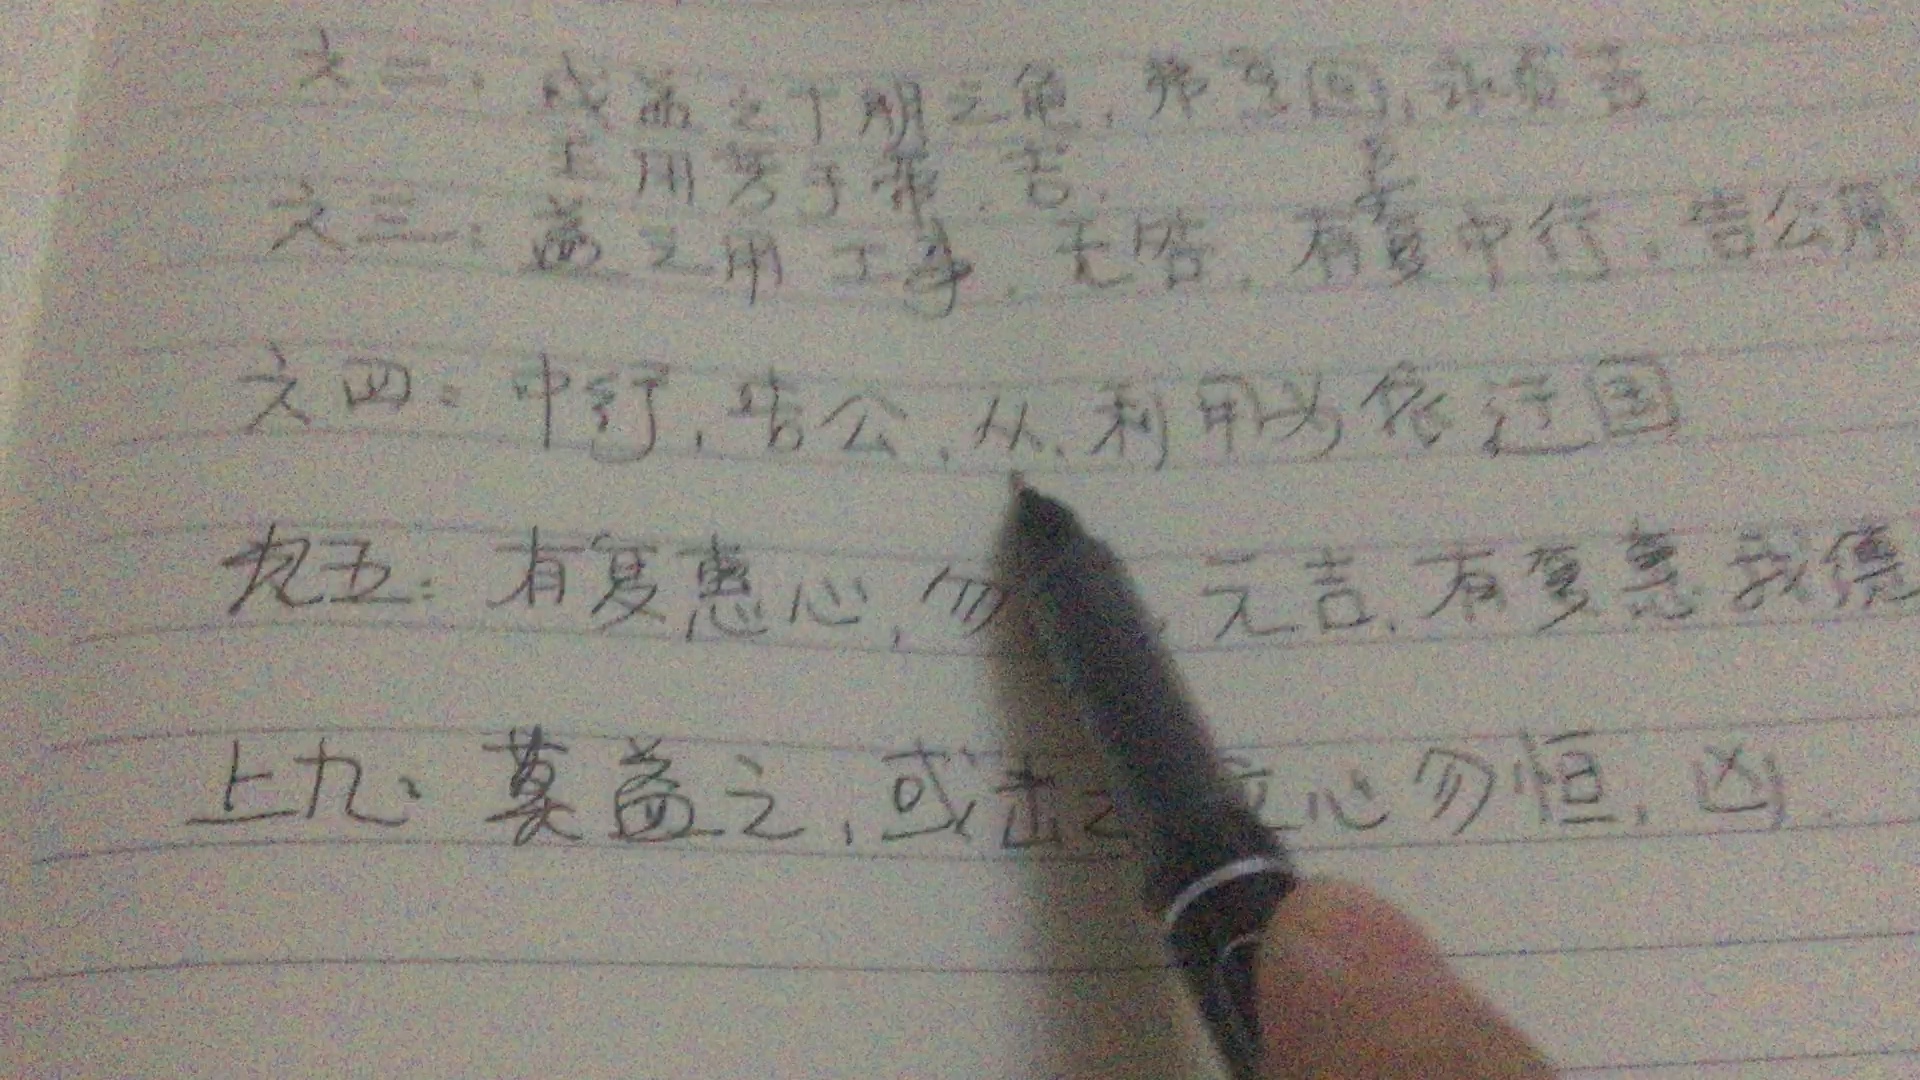 六二：或益之十朋之龟，弗克回，永贞吉
王用享于帝，吉。
六三：益之用工事，无咎，有复中行，告公用
六四：中行，告公，从，利用为依迁国
九五：有复惠心，勿，元吉，有复惠我德
上九：莫益之，或击之，立心勿恒，凶。